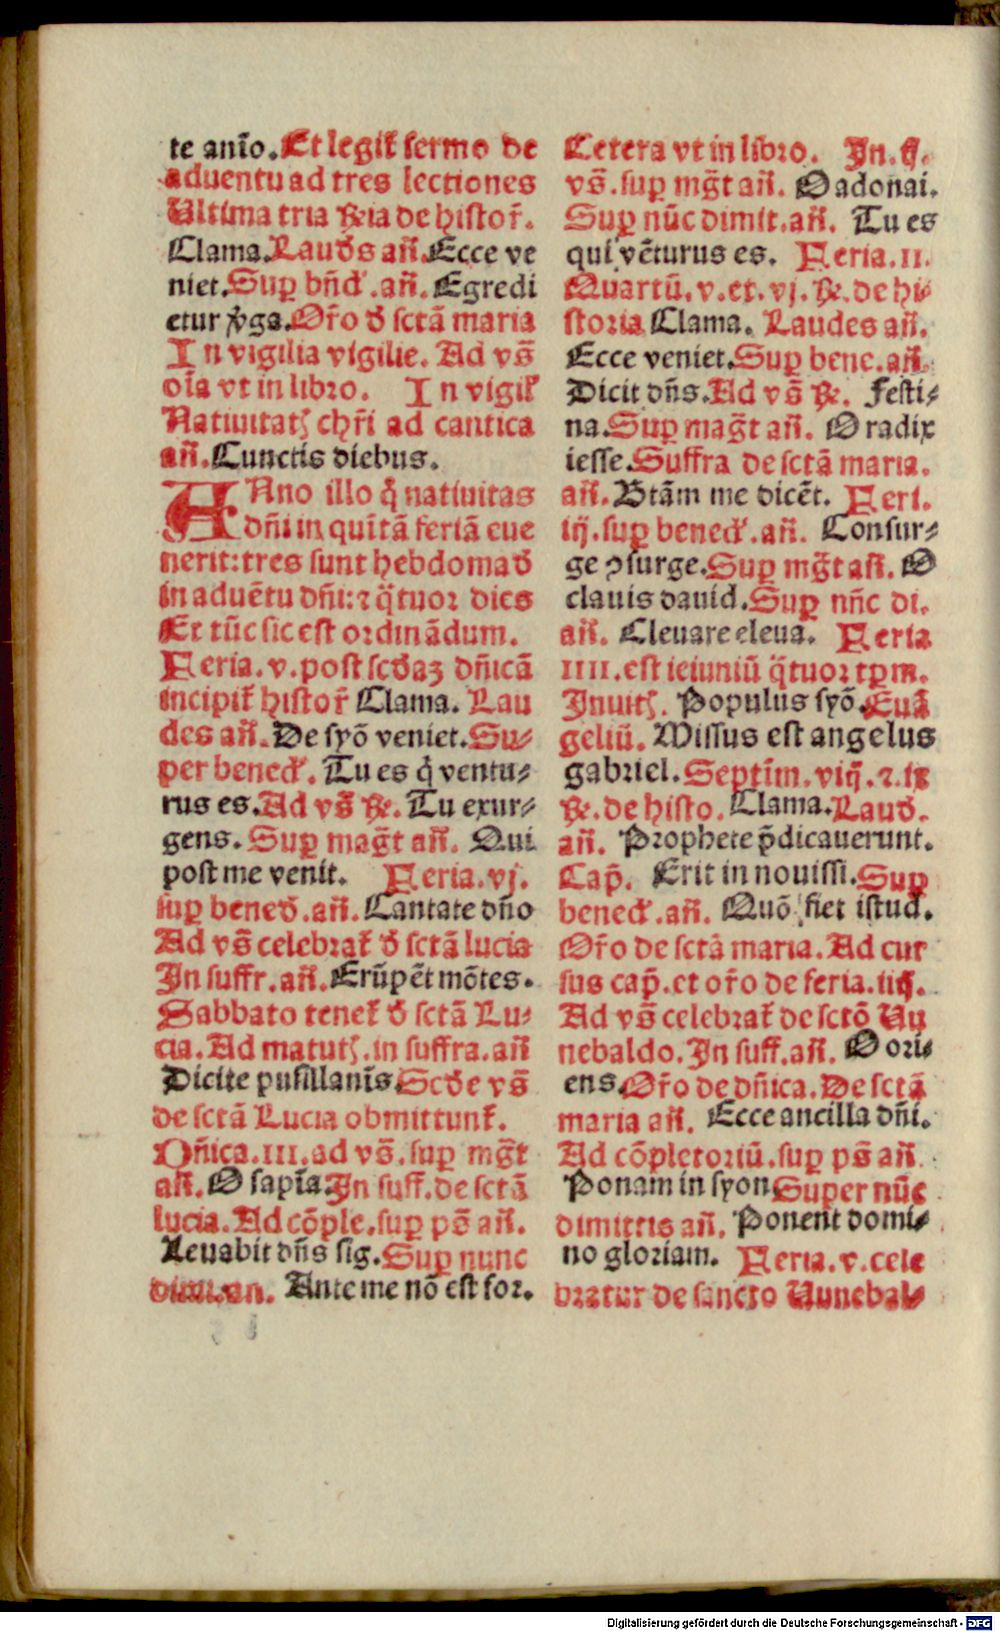 te anīo. Et legit᷑ sermo de
aduentu ad tres lectiones
Ultima tria ℟ia de histor̄.
Clama. Laud̄s añ. Ecce ve
niet. Suꝑ bñd̄. añ. Egredi
etur v̄ga. Or̄o d̄ sctā maria
In vigilia vigilie. Ad vs̄
oīa vt in libro. In vigil᷑
Natiuitatꝭ chr̄i ad cantica
añ. Cunctis diebus.
Anno illo q̄ natiuitas
dñi in quītā feriā eue
nerit: tres sunt hebdomad̄
in aduētu dñi: ⁊ q̄tuor dies
Et tūc sic est ordināduм.
Feria. v. post scd̄aʒ dñicā
incipit᷑ histor̄ Clama. Lau
des añ. De syō veniet. Su⸗
per bened᷑. Tu es q̄ ventu⸗
rus es. Ad vs̄ ℟. Tu exur⸗
gens. Suꝑ maḡt añ. Qui
post me venit. Feria. vj.
suꝑ bened̄. añ. Cantate dño
Ad vs̄ celebrat᷑ d̄ sctā lucia
In suffr. añ. Erūpēt mōtes.
Sabbato tenet᷑ d̄ sctā Lu⸗
cia. Ad matutꝭ. in suffra. añ
Dicite pusillanīs. Scd̄e vs̄
de sctā Lucia obmittunt᷑.
Dñica. III. ad vs̄. suꝑ mḡt
añ. O sapīa. In suff. de sctā
lucia. Ad cōple. suꝑ ps̄ añ.
Leuabit dñs sig. Suꝑ nunc
dimi. an. Ante me nō est for.
Cetera vt in libro. In. ij.
vs̄. suꝑ mḡt añ. O adonai.
Suꝑ nūc dimit. añ. Tu es
qui vēturus es. Feria. II.
Quartū. v. et. vj. ℟. de hi⸗
storia Clama. Laudes añ.
Ecce veniet. Suꝑ bene. añ.
Dicit dñs. Ad vs̄ ℟. Festi⸗
na. Suꝑ maḡt añ. O radix
iesse. Suffra de sctā maria.
añ. Btām me dicēt. Feri.
iij. suꝑ bened᷑. añ. Consur⸗
ge ꝯsurge. Suꝑ mḡt añ. O
clauis dauid. Suꝑ nūc di.
añ. Eleuare eleua. Feria
IIII. est ieiuniū q̄tuor tꝑm.
Inuitꝭ. Populus syō. Euā
geliū. Missus est angelus
gabriel. Septīm. viij. ⁊. ix
℟. de histo. Clama. Laud̄.
añ. Prophete p̄dicauerunt.
Cap̄. Erit in nouissi. Suꝑ
bened᷑. añ. Quō fiet istud.
Or̄o de sctā maria. Ad cur
sus cap̄. et or̄o de feria. iiij.
Ad vs̄ celebrat᷑ de sctō Uu
nebaldo. In suff. añ. O ori⸗
ens. Or̄o de dñica. De sctā
maria añ. Ecce ancilla dñi.
Ad cōpletoriū. suꝑ ps̄ añ.
Ponam in syon. Super nūc
dimittis añ. Ponent domi⸗
no gloriam. Feria. v. cele
bratur de sancto Uunebal⸗
Digitalisierung gefördert durch die Deutsche Forschungsgemeinschaft - DFG